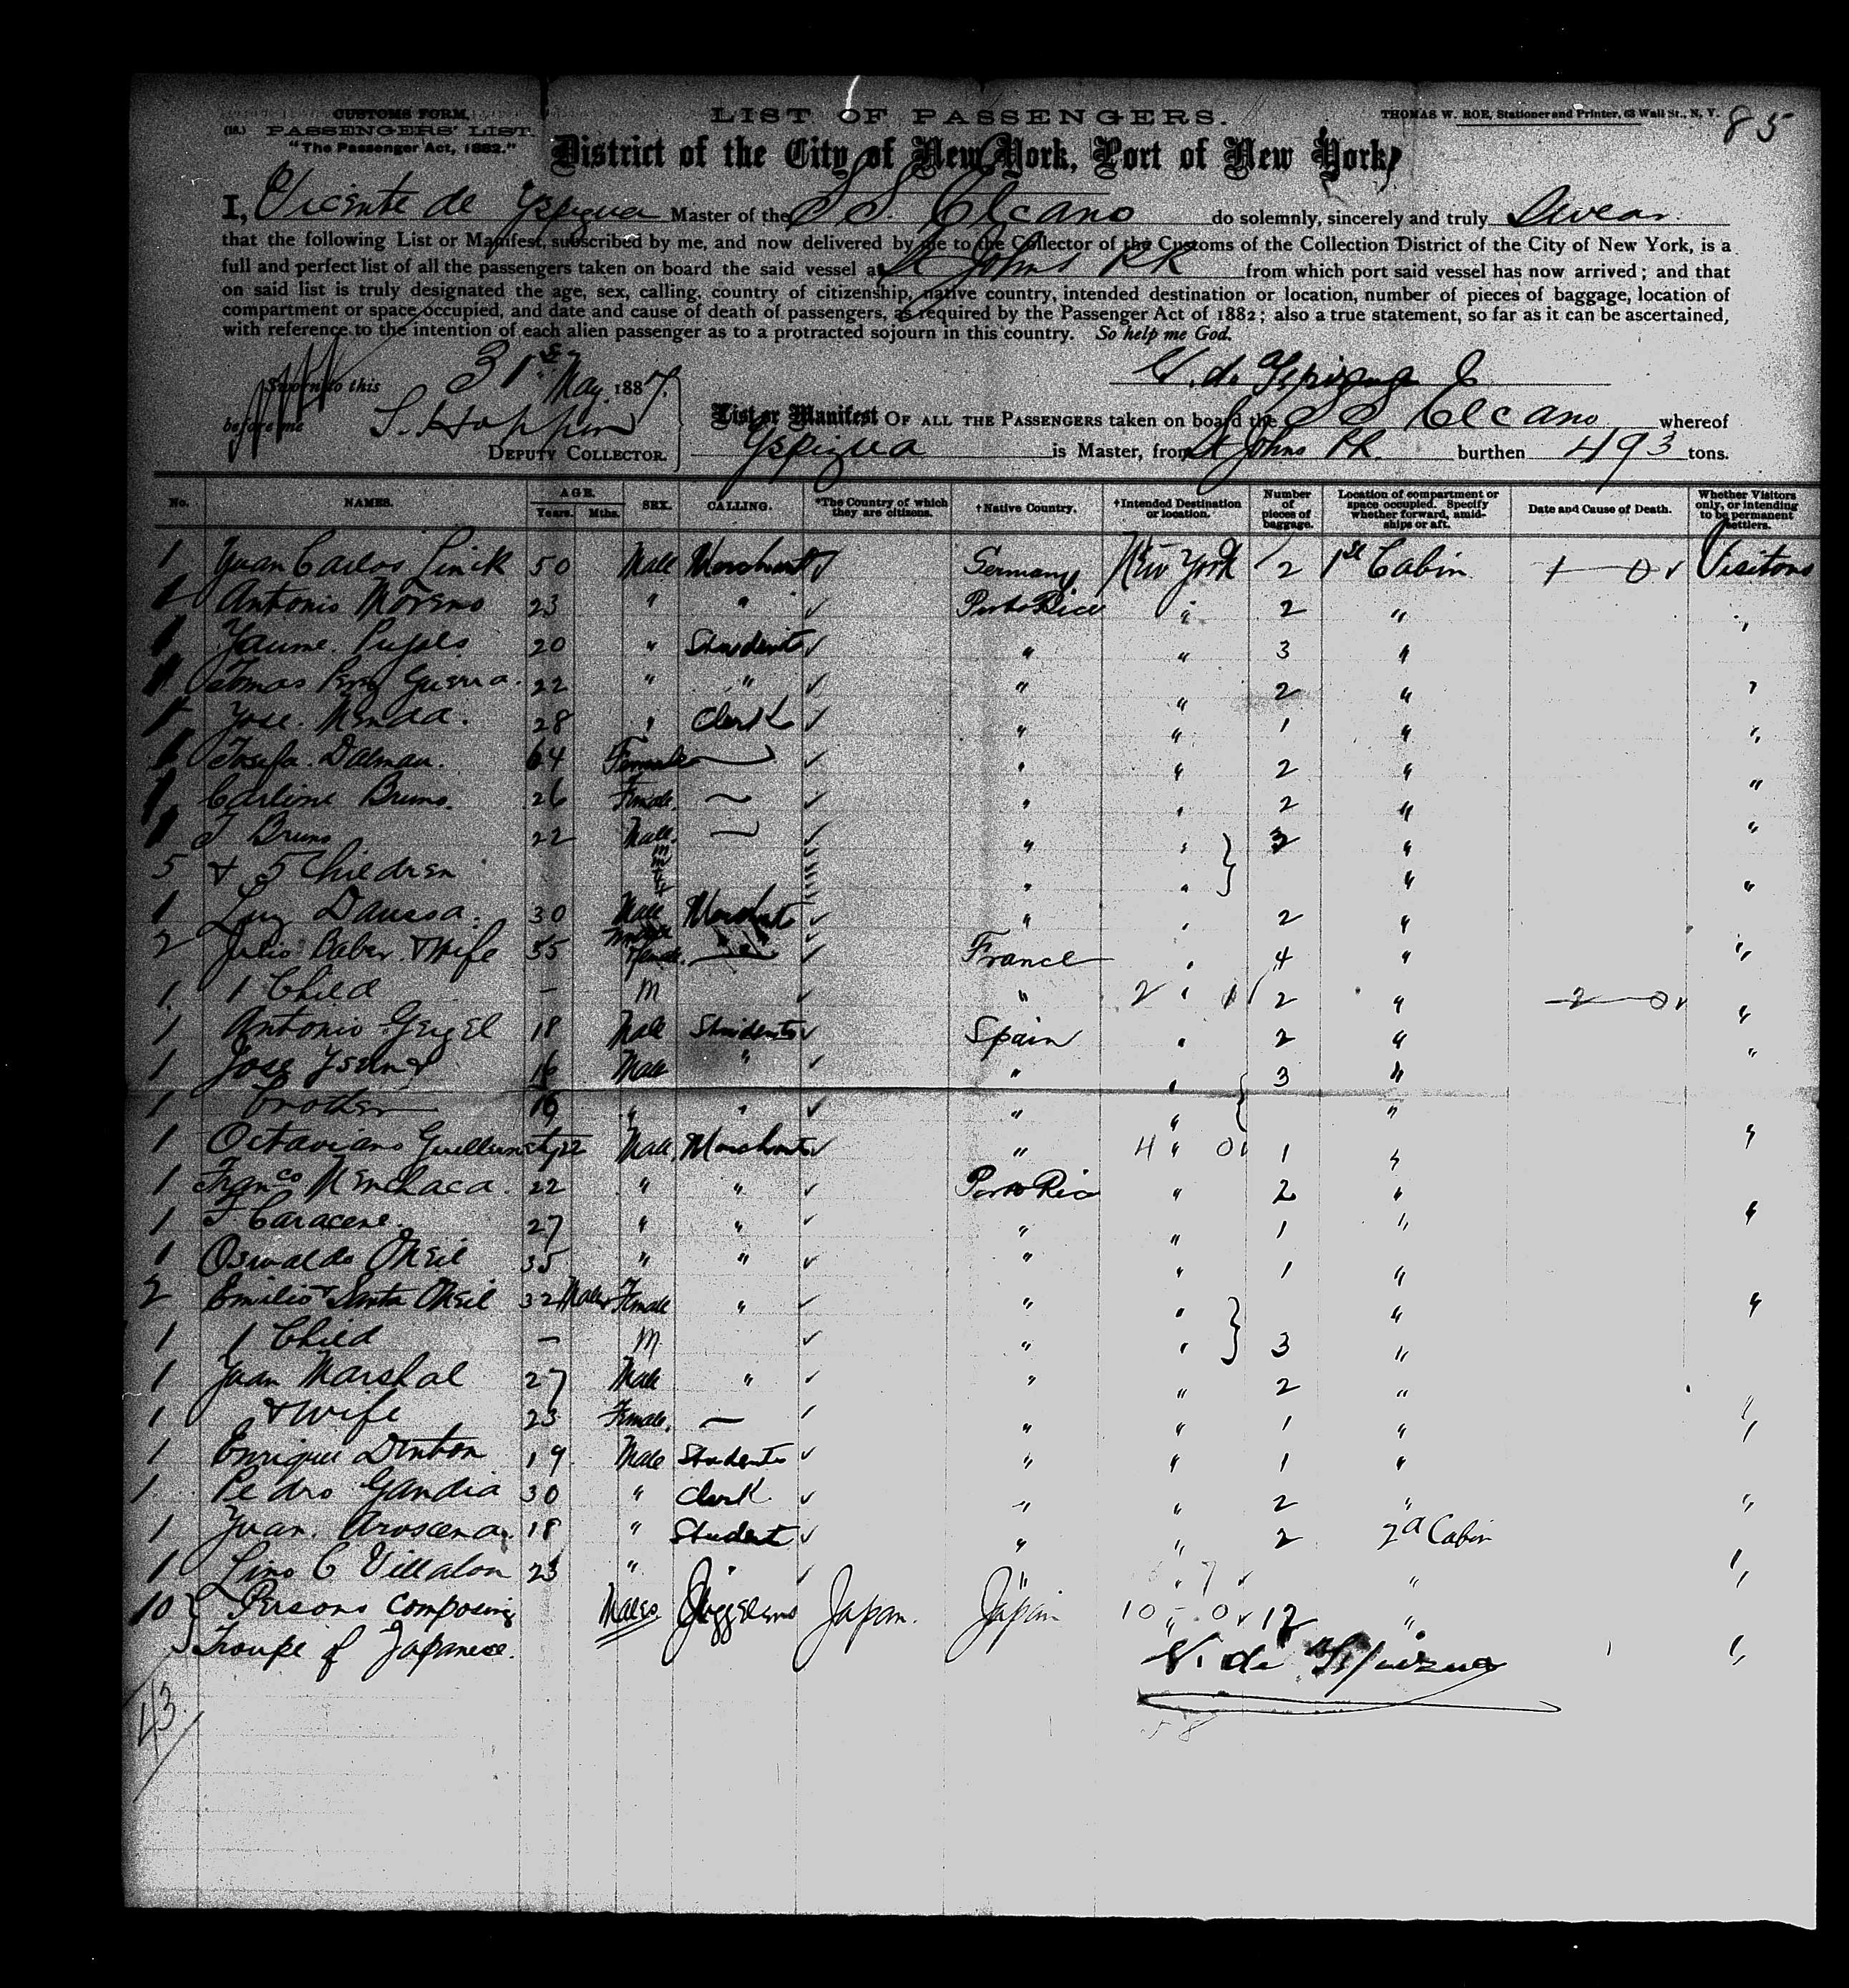 CUSTOMS FORM.
(18.) PASSENGERS' LIST.
"The Passenger Act, 1882."
LIST OF PASSENGERS.
THOMAS W. ROE, Stationer and Printer, 63 Wall St., N. Y.
85
District of the City of New York, Port of New York,
I, Vicente de Yspizua Master of the S S. Elcano do solemnly, sincerely and truly Swear
that the following List or Manifest, subscribed by me, and now delivered by me to the Collector of the Customs of the Collection District of the City of New York, is a
full and perfect list of all the passengers taken on board the said vessel at St Johns PR from which port said vessel has now arrived; and that
on said list is truly designated the age, sex, calling, country of citizenship, native country, intended destination or location, number of pieces of baggage, location of
compartment or space occupied, and date and cause of death of passengers, as required by the Passenger Act of 1882; also a true statement, so far as it can be ascertained,
with reference to the intention of each alien passenger as to a protracted sojourn in this country. So help me God.
Sworn to this 31st May, 1887.
V. de Yspizua
before me
DEPUTY COLLECTOR.
List or Manifest OF ALL THE PASSENGERS taken on board the S S Elcano whereof
Yspizua is Master, from St Johns PR. burthen 493 tons.
No. NAMES. AGE. Years. Mths. SEX. CALLING. *The Country of which they are citizens. †Native Country. †Intended Destination or location. Number of pieces of baggage. Location of compartment or space occupied. Specify whether forward, amidships or aft. Date and Cause of Death. Whether Visitors only, or intending to be permanent settlers.
1 Juan Carlos Linik 50 Male Merchant ✓ Germany New York 2 1st Cabin 1 — 0 ✓ Visitors
1 Antonio Moreno 23 " " ✓ Porto Rico " 2 " "
1 Jaume Pujols 20 " Students ✓ " " 3 "
1 Tomas Perez Guerra. 22 " " ✓ " " 2 " "
1 Jose. 28 " Clerk ✓ " " 1 " "
1 Josefa. Dalmau. 64 Female — ✓ " " 2 " "
1 Carline Bruno. 26 Female. — ✓ " " 2 " "
1 J Bruno 22 Male. — ✓ " " 3 " "
5 & 5 Children " " " "
1 Luz Daussa. 30 Male Merchants ✓ " " 2 "
2 Julio Baber & Wife 35 Female. — ✓ France " 4 " "
1. 1 Child — M ✓ " 2 " 2 " 2 — 0 ✓ "
1 Antonio Geigel 18 Male Students ✓ Spain " 2 " "
1 Jose Ysern & 16 Male " ✓ " " 3 "
1 brother " " ✓ " " "
1 Octaviano 22 Male. Merchants ✓ " 4 " 0 ✓ 1 " "
1 Franco Menchaca. 22 " " ✓ Porto Rico " 2 "
1 F. Caracene. 27 " " ✓ " " 1 " "
1 Oswaldo ONeil 35 " " ✓ " " 1 "
2 Emilio & Santa ONeil 32 Male & Female " ✓ " " " "
1 1 Child — M. ✓ " " 3 "
1 Juan Marshal 27 Male " ✓ " " 2 "
1 & Wife 23 Female. — ✓ " " 1 " "
1 Enrique Denton 19 Male Students ✓ " " 1 "
1. Pedro Gandia 30 " Clerk ✓ " " 2 " "
1 Juan. Aroscena. 18 " Student ✓ " " 2 2d Cabin
1 Lino C Villalon 23 " " ✓ " " " "
10 Persons composing Males Jugglers Japan. Japan 10 - 0 ✓ 12 "
Troupe of Japanese. "
V. de Yspizua
43
58